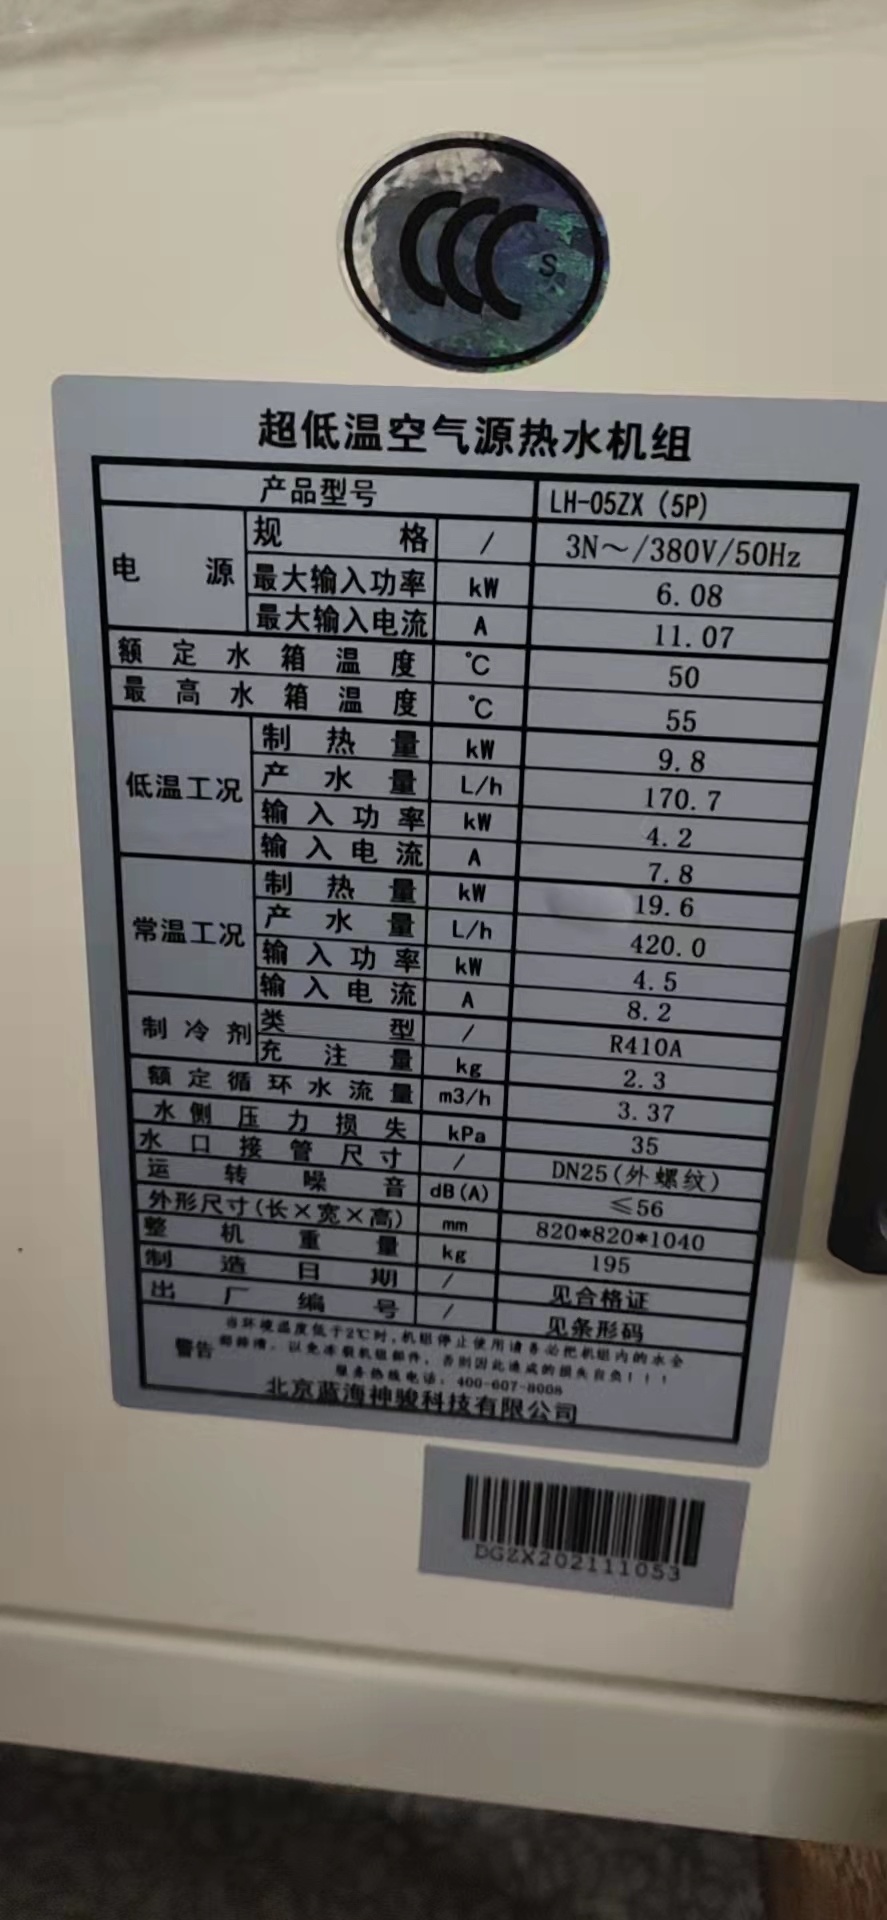 CCC S
超低温空气源热水机组
产品型号 LH-05ZX (5P)
电源 规格 / 3N～/380V/50Hz
最大输入功率 kW 6.08
最大输入电流 A 11.07
额定水箱温度 ℃ 50
最高水箱温度 ℃ 55
低温工况 制热量 kW 9.8
产水量 L/h 170.7
输入功率 kW 4.2
输入电流 A 7.8
常温工况 制热量 kW 19.6
产水量 L/h 420.0
输入功率 kW 4.5
输入电流 A 8.2
制冷剂 类型 / R410A
充注量 kg 2.3
额定循环水流量 m3/h 3.37
水侧压力损失 kPa 35
水口接管尺寸 / DN25(外螺纹)
运转噪音 dB(A) ≤56
外形尺寸(长×宽×高) mm 820*820*1040
整机重量 kg 195
制造日期 / 见合格证
出厂编号 / 见条形码
警告 当环境温度低于2℃时,机组停止使用请务必把机组内的水全
部排清，以免冻裂机组部件，否则因此造成的损失自负!!!
服务热线电话：400-607-8008
北京蓝海神骏科技有限公司
DGZX202111053